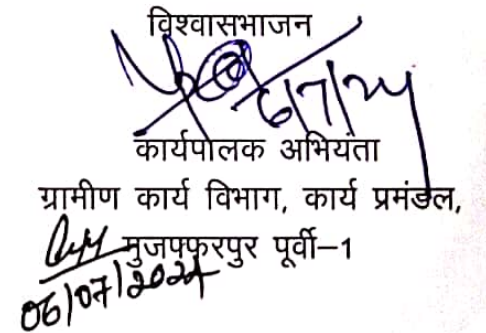 विश्वासभाजन
6/7/24
कार्यपालक अभियंता
ग्रामीण कार्य विभाग, कार्य प्रमंडल,
मुजफ्फरपुर पूर्वी-1
06/07/2024